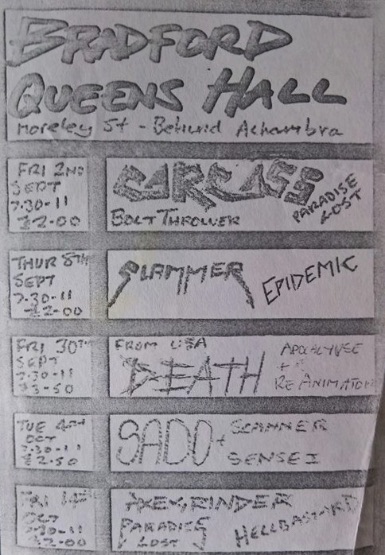 BRADFORD
QUEENS HALL
Moreley St - Behind Alhambra
FRI 2ND
SEPT
7-30-11
£2-00
CARCASS
BOLT THROWER
PARADISE
LOST
THUR 8TH
SEPT
7-30-11
£2-00
SLAMMER
EPIDEMIC
FRI 30TH
SEPT
7-30-11
£3-50
FROM USA
DEATH
APOCALYPSE
+
RE ANIMATOR
TUE 4TH
OCT
7-30-11
£2.50
SADO +
SCANNER
SENSEI
FRI 14TH
OCT
7-30-11
£2-00
AXEGRINDER
PARADISE
LOST
HELLBASTARD